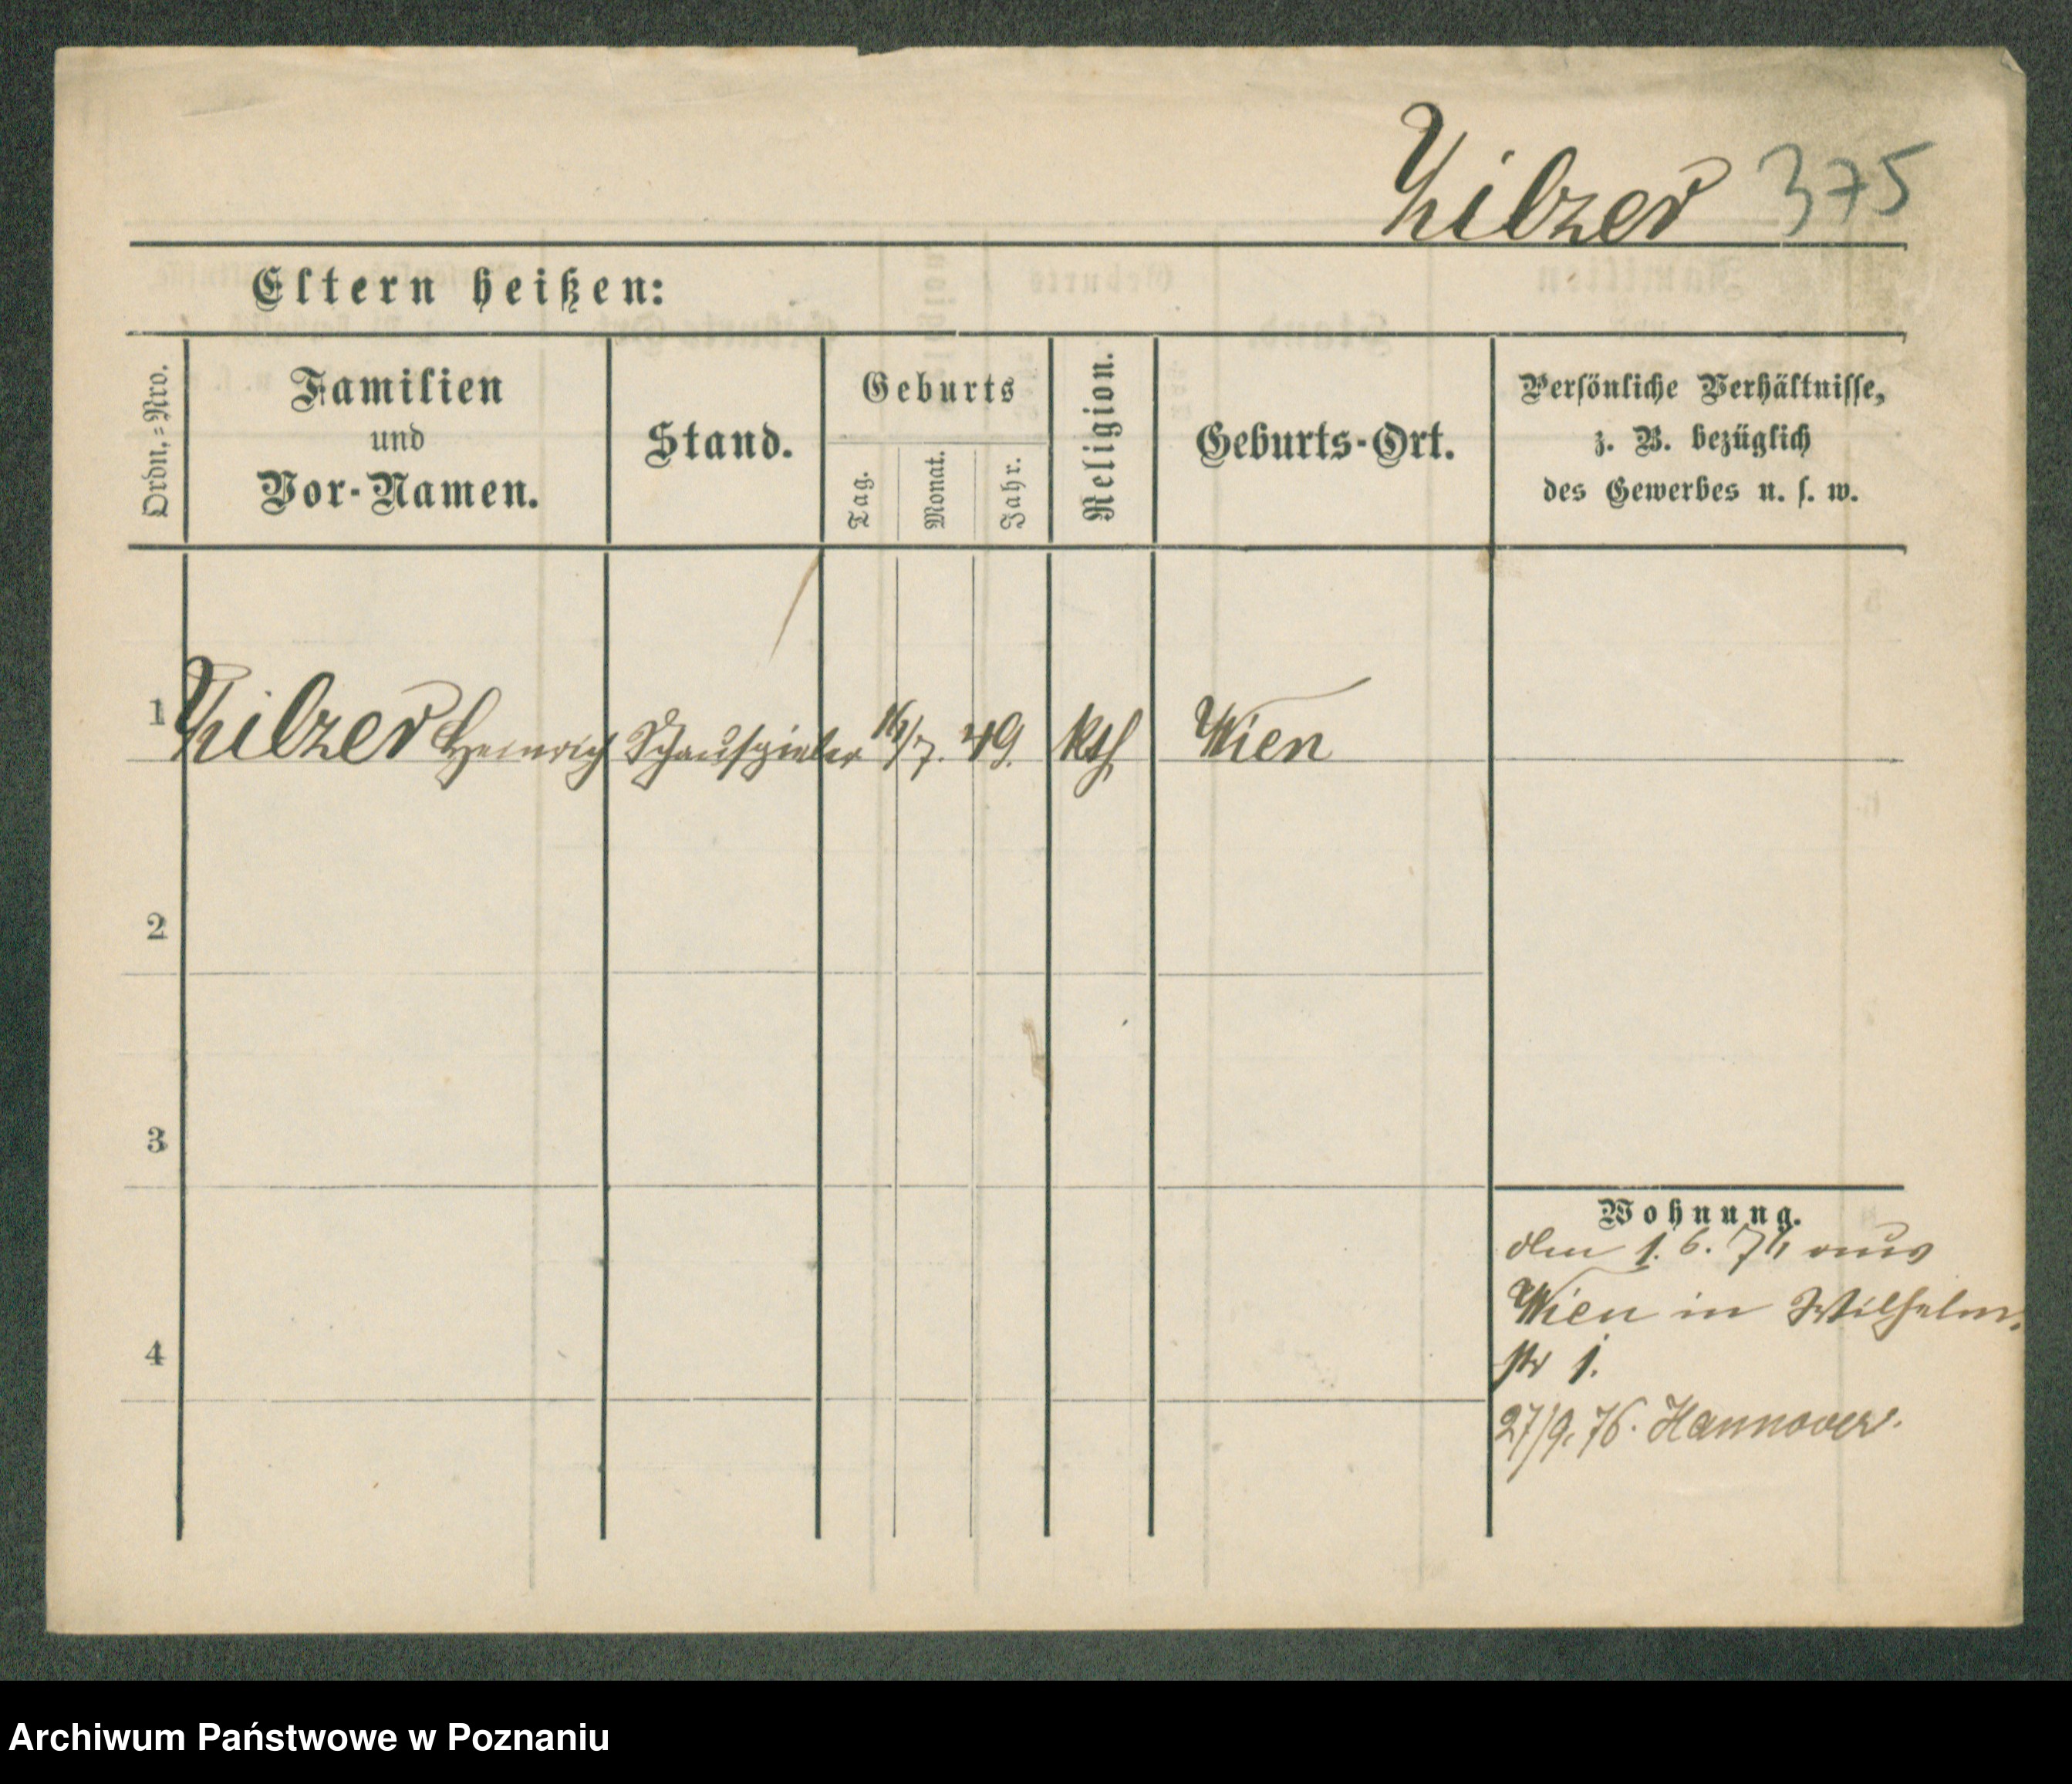 Hilzer 375
Eltern heißen:
Ordn.=Nro.
Familien
und
Vor-Namen.
Stand.
Geburts
Tag.
Monat.
Jahr.
Religion.
Geburts-Ort.
Persönliche Verhältnisse,
z. B. bezüglich
des Gewerbes u. s. w.
1 Hilzer Heinrich Schauspieler /7. 49. kth Wien
2
3
4
Wohnung.
den 1. 6. aus
Wien in Wilhelm.
str 1.
27/9. 76. Hannover.
Archiwum Państwowe w Poznaniu